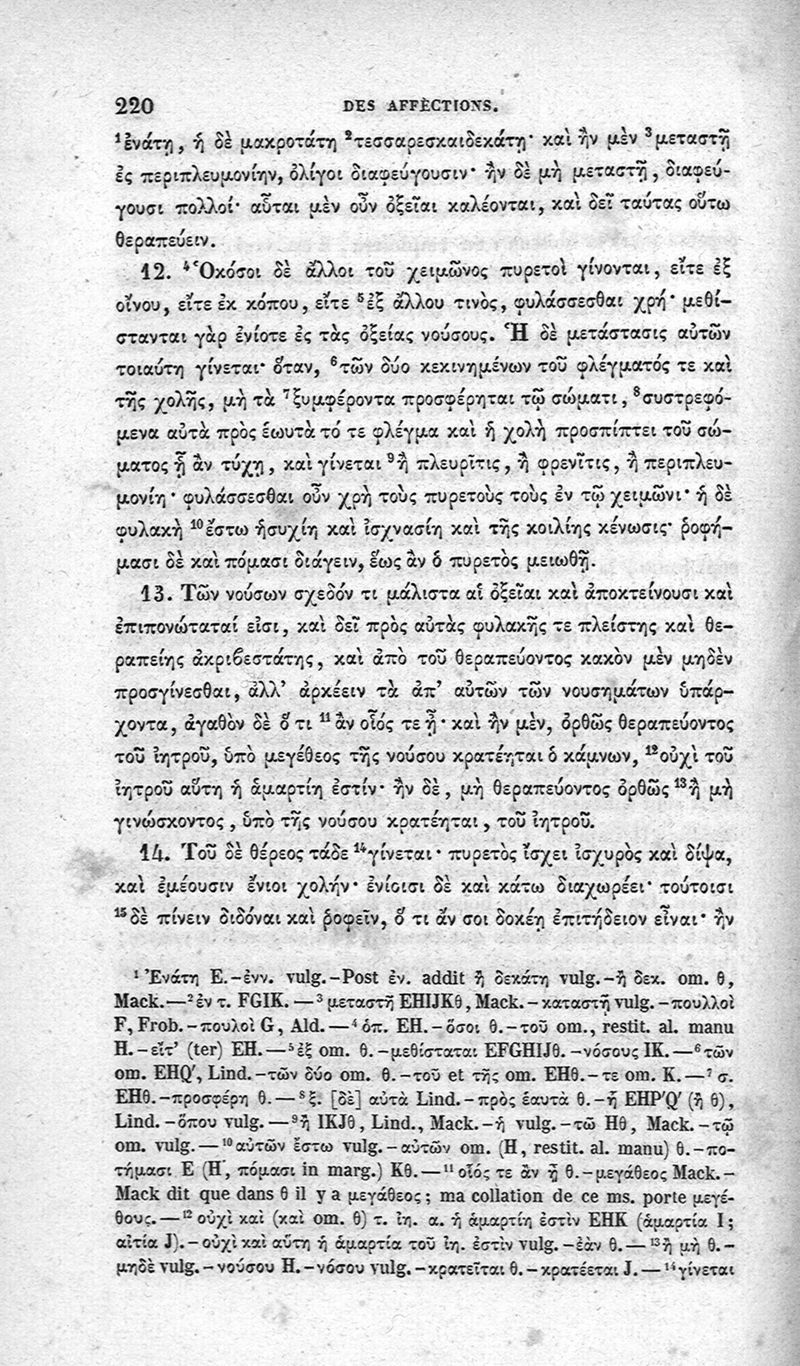 220 DES AFFECTIONS.
¹ἐνάτῃ, ἡ δὲ μακροτάτη ²τεσσαρεσκαιδεκάτῃ· καὶ ἢν μὲν ³μεταστῇ
ἐς περιπλευμονίην, ὀλίγοι διαφεύγουσιν· ἢν δὲ μὴ μεταστῇ, διαφεύ-
γουσι πολλοί· αὗται μὲν οὖν ὀξεῖαι καλέονται, καὶ δεῖ ταύτας οὕτω
θεραπεύειν.
12. ⁴Ὁκόσοι δὲ ἄλλοι τοῦ χειμῶνος πυρετοὶ γίνονται, εἴτε ἐξ
οἴνου, εἴτε ἐκ κόπου, εἴτε ⁵ἐξ ἄλλου τινὸς, φυλάσσεσθαι χρή· μεθί-
στανται γὰρ ἐνίοτε ἐς τὰς ὀξείας νούσους. Ἡ δὲ μετάστασις αὐτῶν
τοιαύτη γίνεται· ὅταν, ⁶τῶν δύο κεκινημένων τοῦ φλέγματός τε καὶ
τῆς χολῆς, μὴ τὰ ⁷ξυμφέροντα προσφέρηται τῷ σώματι, ⁸συστρεφό-
μενα αὐτὰ πρὸς ἑωυτὰ τό τε φλέγμα καὶ ἡ χολὴ προσπίπτει τοῦ σώ-
ματος ᾗ ἂν τύχῃ, καὶ γίνεται ⁹ἢ πλευρῖτις, ἢ φρενῖτις, ἢ περιπλευ-
μονίη· φυλάσσεσθαι οὖν χρὴ τοὺς πυρετοὺς τοὺς ἐν τῷ χειμῶνι· ἡ δὲ
φυλακὴ ¹⁰ἔστω ἡσυχίη καὶ ἰσχνασίη καὶ τῆς κοιλίης κένωσις· ῥοφή-
μασι δὲ καὶ πόμασι διάγειν, ἕως ἂν ὁ πυρετὸς μειωθῇ.
13. Τῶν νούσων σχεδόν τι μάλιστα αἱ ὀξεῖαι καὶ ἀποκτείνουσι καὶ
ἐπιπονώταταί εἰσι, καὶ δεῖ πρὸς αὐτὰς φυλακῆς τε πλείστης καὶ θε-
ραπείης ἀκριβεστάτης, καὶ ἀπὸ τοῦ θεραπεύοντος κακὸν μὲν μηδὲν
προσγίνεσθαι, ἀλλ’ ἀρκέειν τὰ ἀπ’ αὐτῶν τῶν νουσημάτων ὑπάρ-
χοντα, ἀγαθὸν δὲ ὅ τι ¹¹ἂν οἷός τε ᾖ· καὶ ἢν μὲν, ὀρθῶς θεραπεύοντος
τοῦ ἰητροῦ, ὑπὸ μεγέθεος τῆς νούσου κρατέηται ὁ κάμνων, ¹²οὐχὶ τοῦ
ἰητροῦ αὕτη ἡ ἁμαρτίη ἐστίν· ἢν δὲ, μὴ θεραπεύοντος ὀρθῶς ¹³ἢ μὴ
γινώσκοντος, ὑπὸ τῆς νούσου κρατέηται, τοῦ ἰητροῦ.
14. Τοῦ δὲ θέρεος τάδε ¹⁴γίνεται· πυρετὸς ἴσχει ἰσχυρὸς καὶ δίψα,
καὶ ἐμέουσιν ἔνιοι χολήν· ἐνίοισι δὲ καὶ κάτω διαχωρέει· τούτοισι
¹⁵δὲ πίνειν διδόναι καὶ ῥοφεῖν, ὅ τι ἄν σοι δοκέῃ ἐπιτήδειον εἶναι· ἢν
¹ Ἐνάτη E.-ἐνν. vulg.-Post ἐν. addit ἢ δεκάτη vulg.-ἢ δεκ. om. θ,
Mack.—²ἐν τ. FGIK. —³ μεταστῇ EHIJKθ, Mack.-καταστῇ vulg.-πουλλοὶ
F, Frob.-πουλοὶ G, Ald.—⁴ὁπ. EH.-ὅσοι θ.-τοῦ om., restit. al. manu
H.-εἴτ’ (ter) EH.—⁵ἐξ om. θ.-μεθίσταται EFGHIJθ.-νόσους IK.—⁶τῶν
om. EHQ′, Lind.-τῶν δύο om. θ.-τοῦ et τῆς om. EHθ.-τε om. K.—⁷ σ.
EHθ.-προσφέρη θ.—⁸ξ. [δὲ] αὐτὰ Lind.-πρὸς ἑαυτὰ θ.-ᾗ EHP′Q′ (ἢ θ),
Lind.-ὅπου vulg.—⁹ἢ IKJθ, Lind., Mack.-ἡ vulg.-τῶ Hθ, Mack.-τῷ
om. vulg.—¹⁰αὐτῶν ἔστω vulg.-αὐτῶν om. (H, restit. al. manu) θ.-πο-
τήμασι E (H, πόμασι in marg.) Kθ.—¹¹οἷός τε ἂν ᾖ θ.-μεγάθεος Mack.-
Mack dit que dans θ il y a μεγάθεος; ma collation de ce ms. porte μεγέ-
θους.—¹²οὐχὶ καὶ (καὶ om. θ) τ. ἰη. α. ἡ ἁμαρτίη ἐστὶν EHK (ἁμαρτία I;
αἰτία J).-οὐχὶ καὶ αὕτη ἡ ἁμαρτία τοῦ ἰη. ἐστὶν vulg.-ἐὰν θ.—¹³ἢ μὴ θ.-
μηδὲ vulg.-νούσου H.-νόσου vulg.-κρατεῖται θ.-κρατέεται J.—¹⁴γίνεται